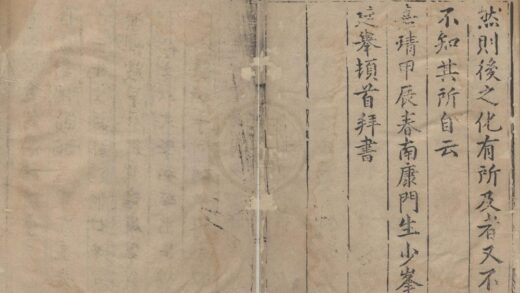 然則後之化有所及者又不
不知其所自云
嘉靖甲辰春南康門生少峯
舉頓首拜書